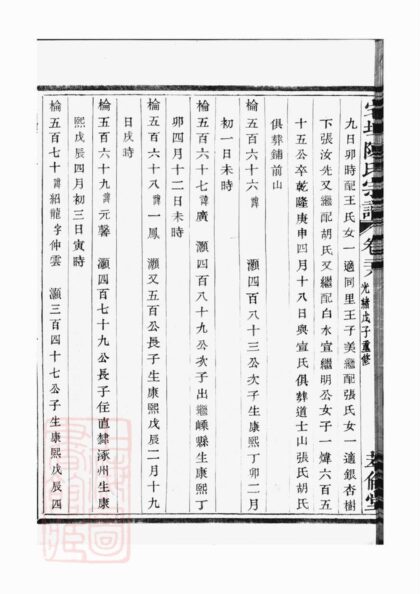 宅埠陳氏宗譜 卷 光緒戊子重修
九日卯時配王氏女一適同里王子美繼配張氏女一適銀杏樹
下張汝先又繼配胡氏又繼配白水宣繼明公女子一煒六百五
十五公卒乾隆庚申四月十八日與宣氏俱葬道士山張氏胡氏
俱葬鋪前山
棆五百六十六諱 灝四百八十三公次子生康熙丁卯二月
初一日未時
棆五百六十七諱廣 灝四百八十九公次子出繼嵊縣生康熙丁
卯四月十二日未時
棆五百六十八諱一鳳 灝又五百公長子生康熙戊辰二月十九
日戌時
棆五百六十九諱元馨 灝四百七十九公長子任直隸涿州生康
熙戊辰四月初三日寅時
棆五百七十諱紹龍字仲雲 灝三百四十七公子生康熙戊辰四